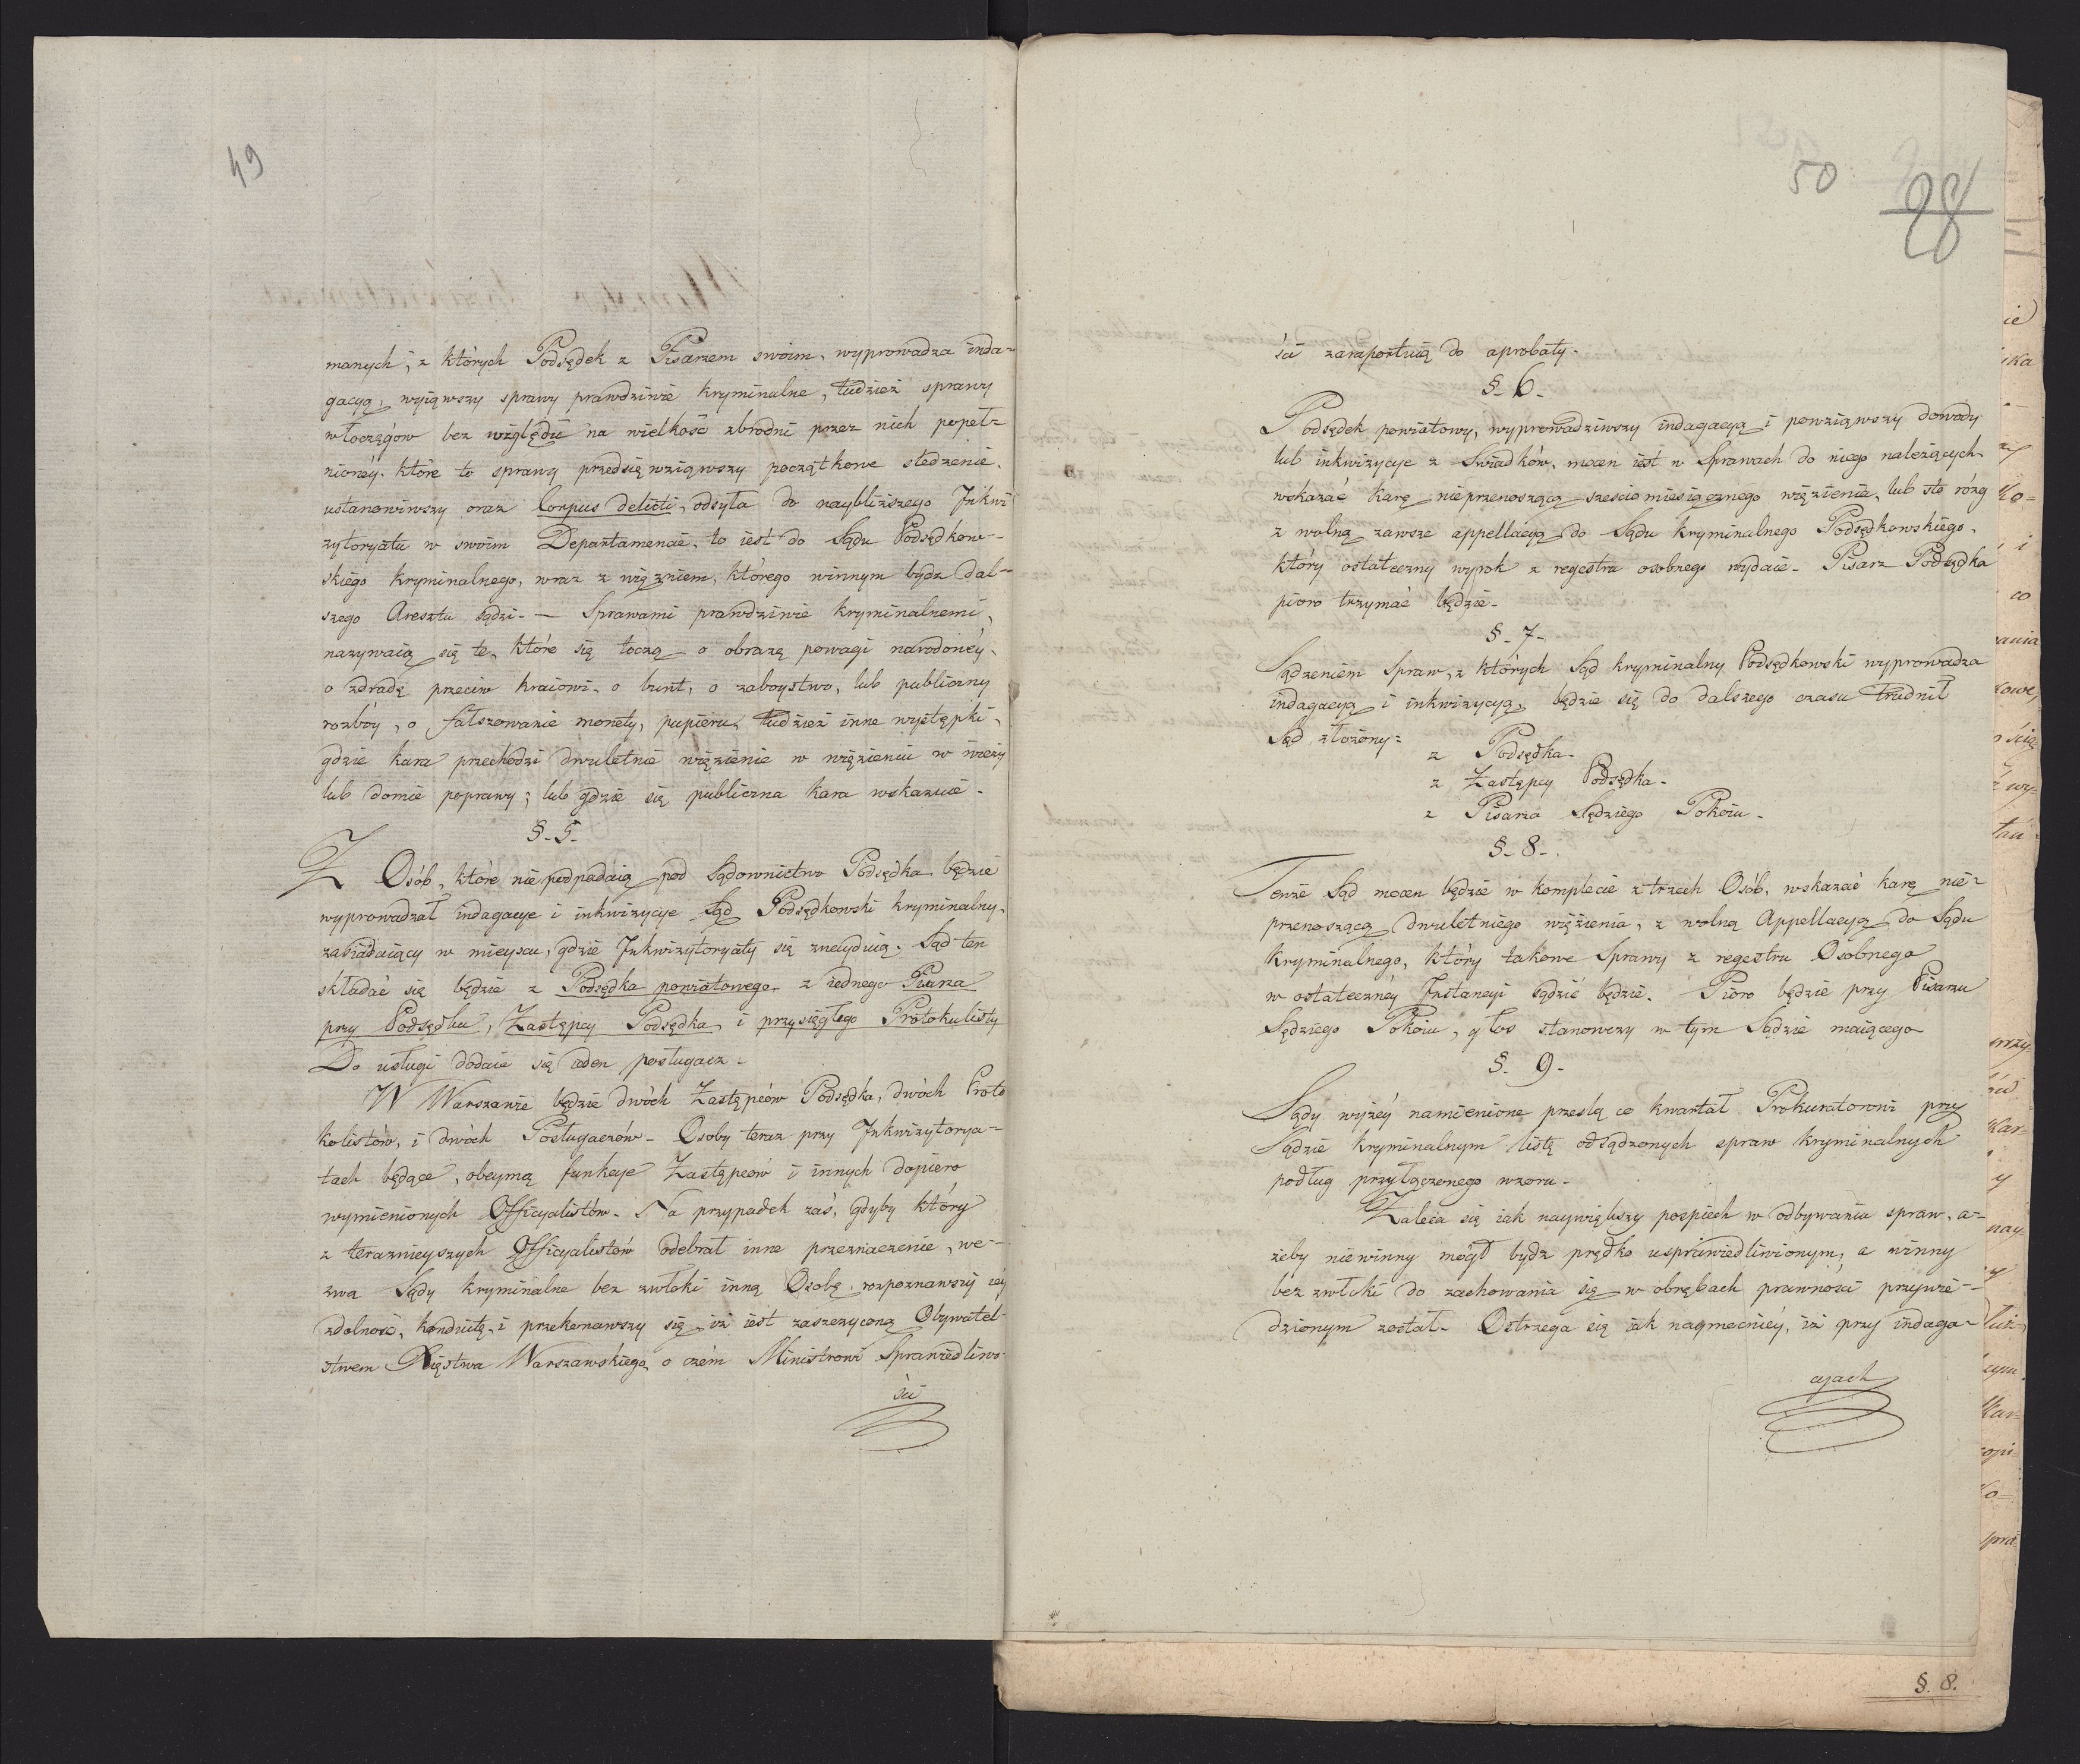 49
manych, z których Podsędek z Pisarzem swoim, wyprowadza inda-
gacyą, wyiąwszy sprawy prawdziwie kryminalne, tudzież sprawy
włoczęgów bez względu na wielkość zbrodni przez nich popeł-
nionéy. które to sprawy przedsięwziąwszy początkowe sledzenie.
ustanowiwszy oraz Corpus delicti, odsyła do naybliższego Inkwi
zytoryatu w swoim Departamencie, to iest do Sądu Podsędkow-
skiego kryminalnego, wraz z więzniem, którego winnym bydz dal-
szego Aresztu sądzi. — Sprawami prawdziwie kryminalnemi,
nazywaią się te, które się toczą o obrazę powagi narodowéy,
o zdradę przeciw kraiowi, o bunt, o zaboystwo, lub publiczny
rozbóy, o fałszowanie monety, papieru, tudzież inne występki,
gdzie kara przechodzi dwuletnie więzienie w więzieniu w wieży
lub domie poprawy; lub gdzie się publiczna kara wskazuie.
§. 5.
Z Osób, które nie podpadaią pod Sądownictwo Podsędka będzie
wyprowadzał indagacye i inkwizycye Sąd Podsędkowski kryminalny.
zasiadaiący w mieyscu, gdzie Inkwizytoryaty się znayduią. Sąd ten
składać się będzie z Podsędka powiatowego z iednego Pisarza
przy Podsędku, Zastępcy Podsędka i przysięgłego Protokulisty
Do usługi dodaie się ieden posługacz.
W Warszawie będzie dwóch Zastępców Podsędka, dwóch Proto
kolistów, i dwóch Posługaczów. Osoby teraz przy Inkwizytorya-
tach będące, obeymą funkcye Zastępców i innych dopiero
wymienionych Officyalistów. Na przypadek zaś, gdyby który
z teraznieyszych Officyalistów odebrał inne przeznaczenie, we-
zwą Sądy kryminalne bez zwłoki inną Osobę, rozpoznawszy iey
zdolność, konduitę, i przekonawszy się iż iest zaszczyconą Obywatel-
stwem Xięstwa Warszawskiego, o czém Ministrowi Sprawiedliwo-
ści
50
28
ści zaraportuią do aprobaty.
§. 6.
Podsędek powiatowy, wyprowadziwszy indagacyą i powziąwszy dowody
lub inkwizycye z Swiadków, mocen iest w Sprawach do niego należących
wskazać karę nieprzenoszącą szesciomiesięcznego więzienia, lub sto rózg
z wolną zawsze appellacyą do Sądu kryminalnego Podsędkowskiego.
który ostateczny wyrok z regestru osobnego wydaie. Pisarz Podsędka
pioro trzymać będzie.
§. 7.
Sądzeniem Spraw, z których Sąd kryminalny Podsędkowski wyprowadza
indagacyą i inkwizycyą, będzie się do dalszego czasu trudnił
Sąd złożony:
z Podsędka.
z Zastępcy Podsędka.
z Pisarza Sędziego Pokoiu.
§. 8.
Tenże Sąd mocen będzie w komplecie z trzech Osób, wskazać karę nie-
przenoszącą dwuletniego więzienia, z wolną Appellacyą do Sądu
kryminalnego, który takowe Sprawy z regestru Osobnego
w ostatecznéy Instancyi sądzić będzie. Pioro będzie przy Pisarzu
Sędziego Pokoiu, głos stanowczy w tym Sądzie maiącego
§. 9.
Sądy wyżéy namienione prześlą co kwartał Prokuratorowi przy
Sądzie kryminalnym listę odsądzonych spraw kryminalnych
podług przyłączonego wzoru.
Zaleca się iak naywiększy pospiech w odbywaniu spraw, a-
żeby niewinny mógł bydz prędko usprawiedliwionym, a winny
bez zwłoki do zachowania się w obrębach prawności przywie-
dzionym został. Ostrzega się iak naymocniéy, iż przy indaga-
cyach
§. 8.